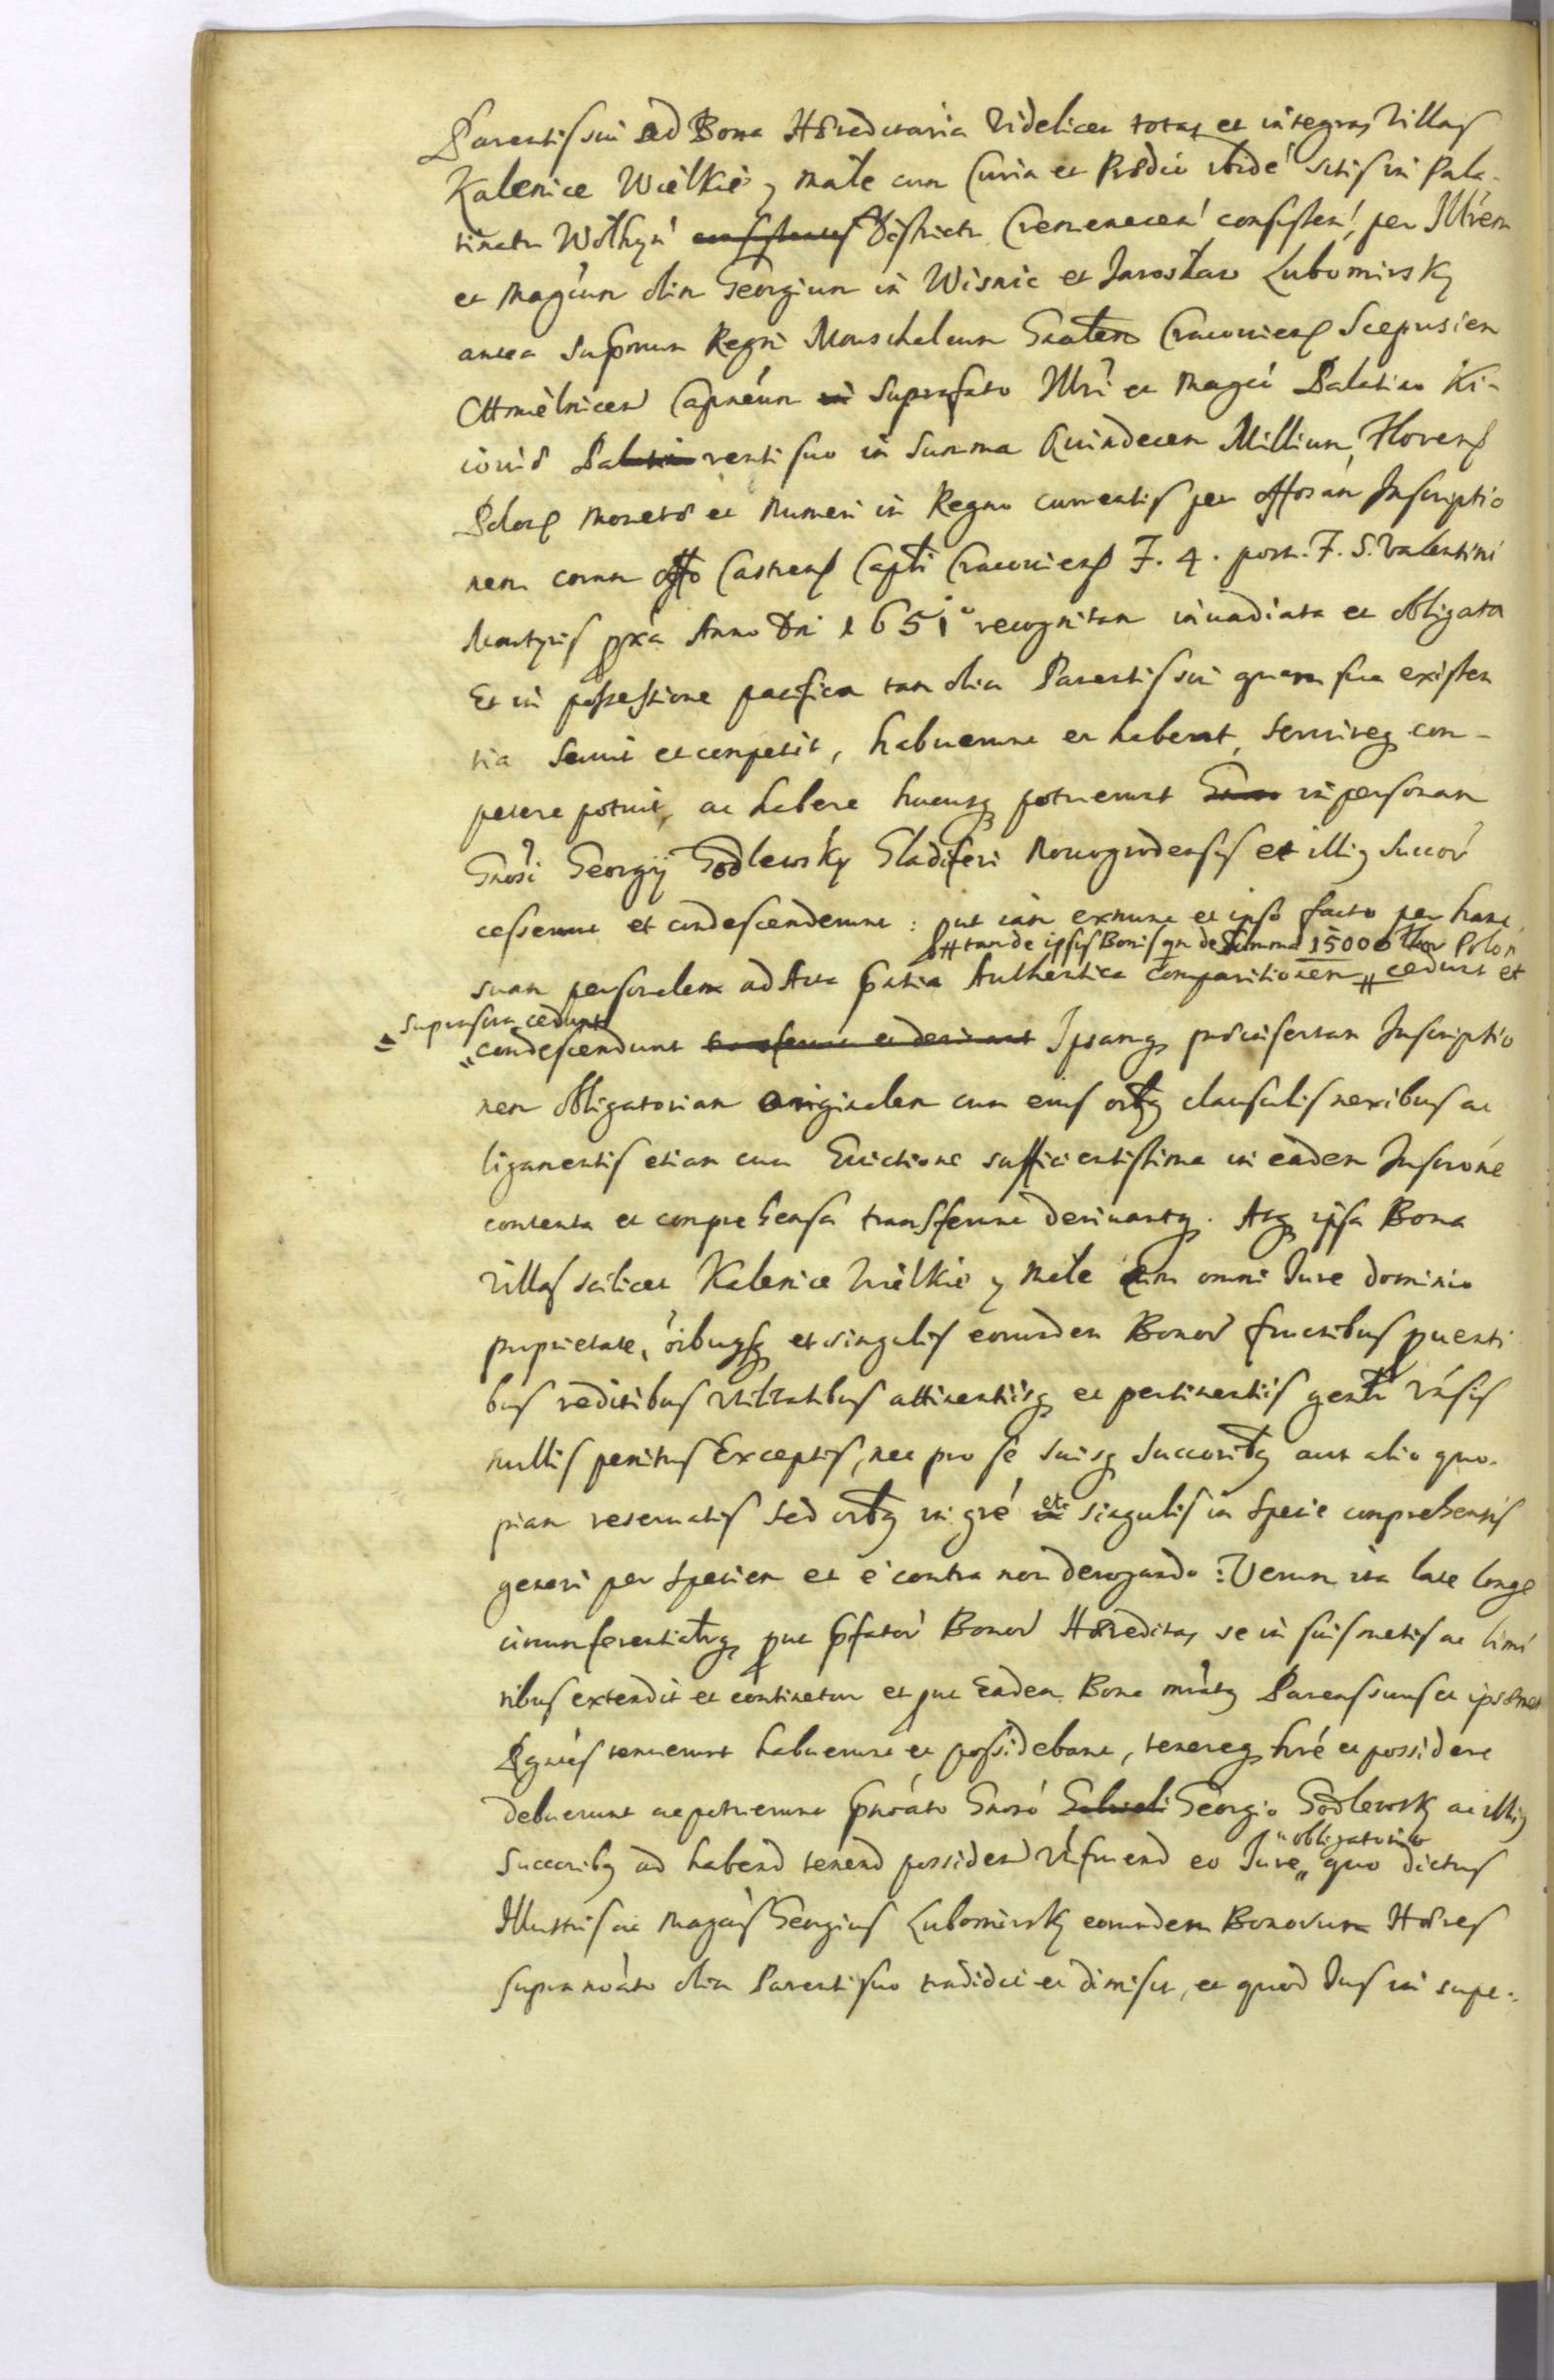 Parentis sui ad Bona Hæreditaria Videlicet totas et integras Villas
Kalenice Wielkie y Małe cum Curia et Prædio ibidē sitis in Pala-
tinatu Wołhyn̄ consistentes Districtu Cremenecen̄ consisten̄, per Illrem
et Magcum olim Georgium in Wisnic et Jarosław Lubomirsky
antea Supmum Regni Marschalcum Gnalem Cracovien Scepusien
Chmielnicen Capneum in Suprafato Illri et Magco Palatino Ki-
ioviæ Palati renti suo in Summa Quindecem Millium Floren
Polon Monetæ et Numeri in Regno currentis per Offosam Inscriptio
nem coram Offo Castren Capti Cracovien F. 4. post. F. S. Valentini
Martyris pxa Anno Dni 1651° recognitam invadiata et obligata
Et in possessione pacifica tam olim Parentis sui quam sua existen
tia servit et competit, habuerunt et habent, servireq com-
petere potuit, ac habere hucusq potuerunt in personam
Gnosi Georgij Godlewsky Gladiferi Novogrodensis et illius Succor
cesserunt et condescenderunt: put iam exnunc et ipso facto per hanc
# tam de ipsis Bonis qm de Summa 15000 flor Polon
suam personalem ad Acta pntia Authentica Comparitionem # cedunt et
suprascta cedunt
condescendunt transferunt et derivant Ipsamq præinsertam Inscriptio
nem Obligatoriam originalem cum eius oibq clausulis nexibus ac
ligamentis etiam cum Evictione sufficientissima in eadem Inscrone
contenta et comprehensa transferunt derivantq. Atq ipsa Bona
Villas scilicet Kalenice Wielkie y Małe cum omni Jure dominio
proprietate, oibusq et singulis eorundem Bonor fructibus puenti
bus reditibus utilitatibus attinentiisq et pertinentiis gentr Vnsis
nullis penitus Exceptis, nec pro se suisq Succoribq aut alio quo-
piam reservatis sed oibq in gre et singulis in specie comprehensis
generi per speciem et e contra non derogando: Verum ita late longe
circumferentialtrq put pfator Bonor Hæreditas se in suis metis ac limi
tibus extendit et continetur et put Eadem Bona Parens suus et ipsemet
tenuerunt habuerunt et possidebant, tenereq hre et possidere
debuerunt ac potuerunt pnoato Gnoso Georgio Godlewsky ac illius
Succoribq ad habend tenend possidend Utifruend eo Jure " quo dictus
" obligatorio
Illustris ac Magcus Georgius Lubomirsky eorundem Bonorum Hæres
supranoato olim Parenti suo tradidit et dimisit, et quod Jus in supe-